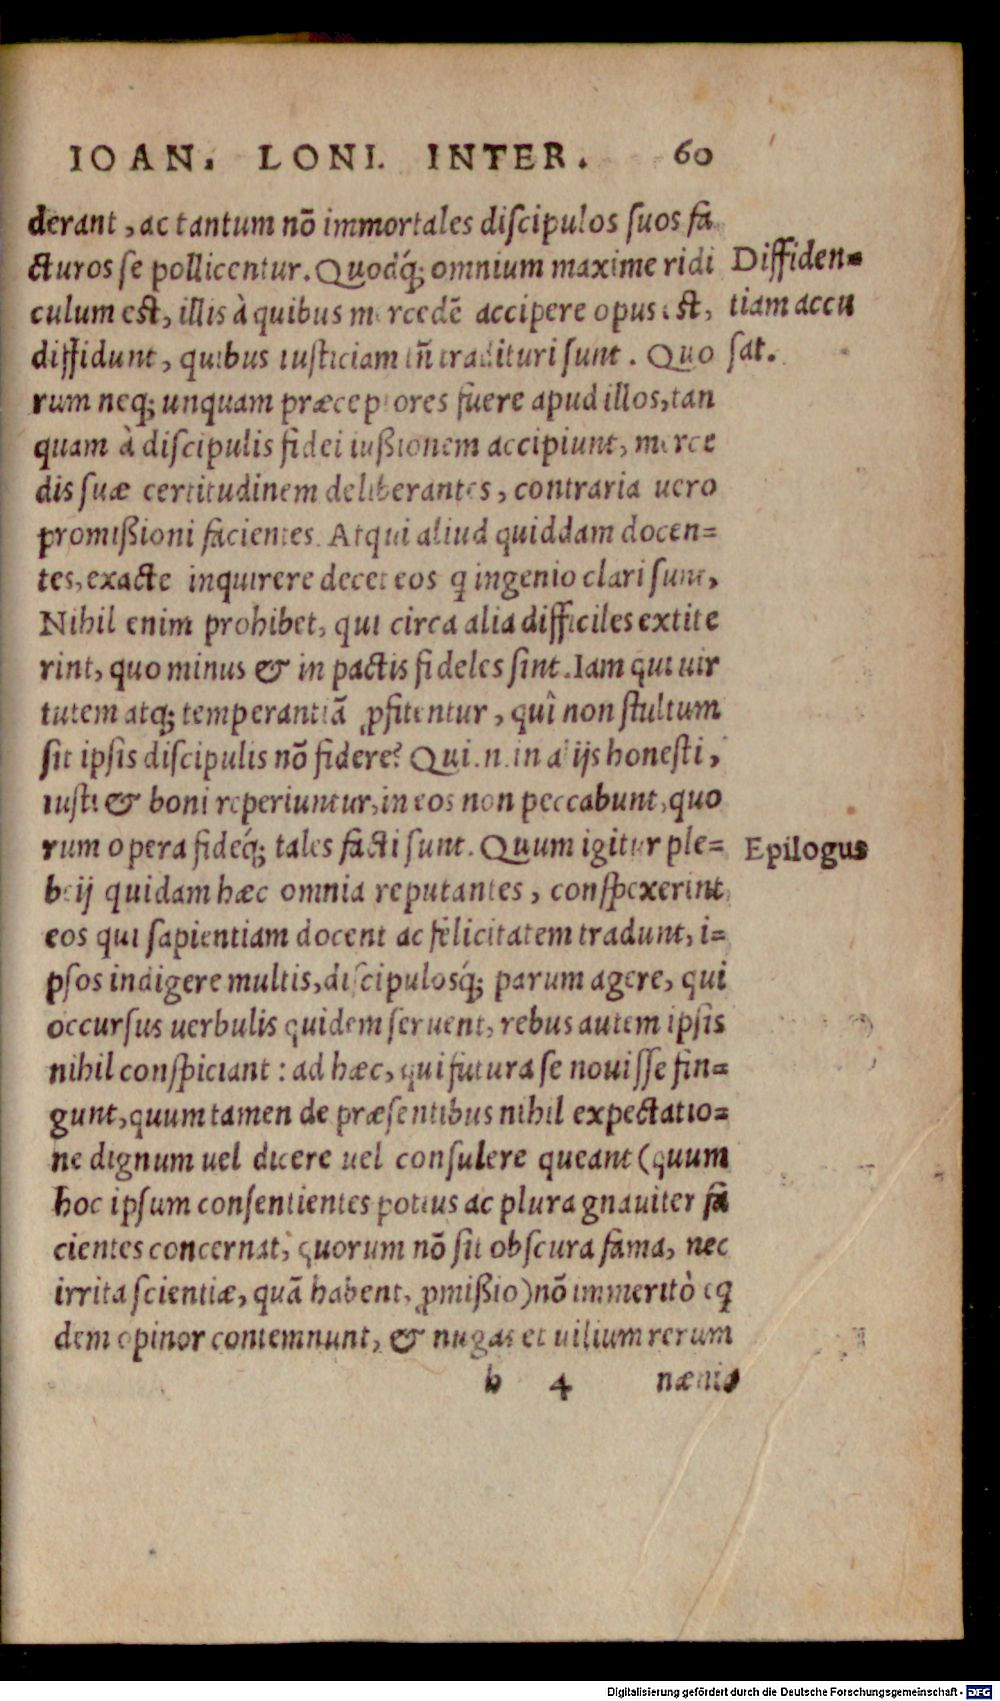 IOAN. LONI. INTER. 60
derant, ac tantum nõ immortales diſcipulos ſuos fa
cturos ſe pollicentur. Quodq́; omnium maxime ridi
culum eſt, illis à quibus mercedē accipere opus eſt,
diffidunt, quibus iuſticiam iñ tradituri ſunt. Quo
rum neq; unquam præceptores fuere apud illos, tan
quam à diſcipulis fidei iußionem accipiunt, merce
dis ſuæ certitudinem deliberantes, contraria uero
promißioni facientes. Atqui aliud quiddam docen=
tes, exacte inquirere decet eos q̃ ingenio clari ſunt,
Nihil enim prohibet, qui circa alia difficiles extite
rint, quo minus & in pactis fideles ſint. Iam qui uir
tutem atq; temperantiã ꝓfitentur, quî non ſtultum
ſit ipſis diſcipulis nõ fidere? Qui .n. in alijs honeſti,
iuſti & boni reperiuntur, in eos non peccabunt, quo
rum opera fideq́; tales facti ſunt. Quum igitur ple=
beij quidam hæc omnia reputantes, conſpexerint
eos qui ſapientiam docent ac felicitatem tradunt, i=
pſos indigere multis, diſcipulosq́; parum agere, qui
occurſus uerbulis quidem ſeruent, rebus autem ipſis
nihil conſpiciant: ad hæc, qui futura ſe nouiſſe fin=
gunt, quum tamen de præſentibus nihil expectatio=
ne dignum uel dicere uel conſulere queant (quum
hoc ipſum conſentientes potius ac plura gnauiter fa
cientes concernat, quorum nõ ſit obſcura fama, nec
irrita ſcientiæ, quã habent, ꝓmißio) nõ immeritò eq̃
dem opinor contemnunt, & nugas et uilium rerum
b 4 nænia
Diffiden=
tiam accu
ſat.
Epilogus
Digitalisierung gefördert durch die Deutsche Forschungsgemeinschaft - DFG